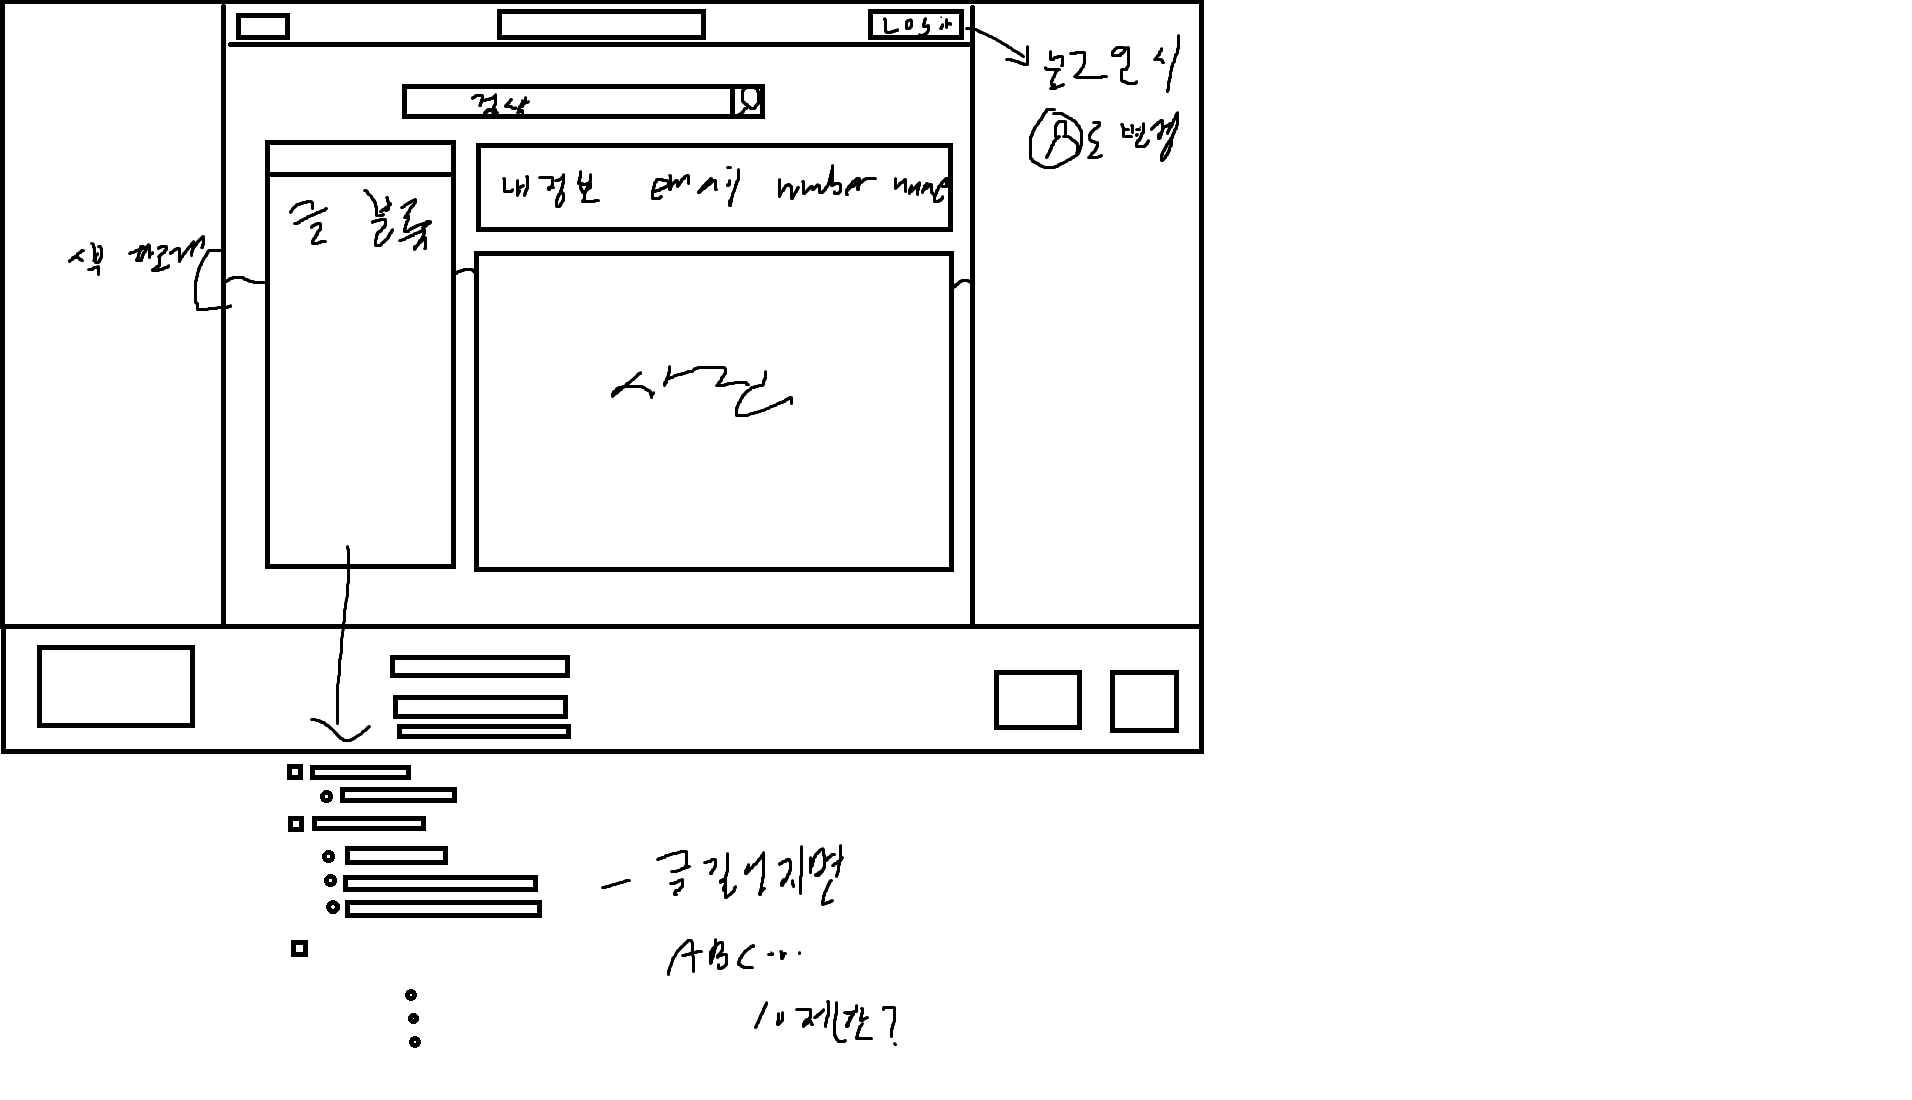 Login
로그인 시
로 변경
검색
내정보 email number name
글 블록
사진
- 글 길어지면
ABC...
10 제한?